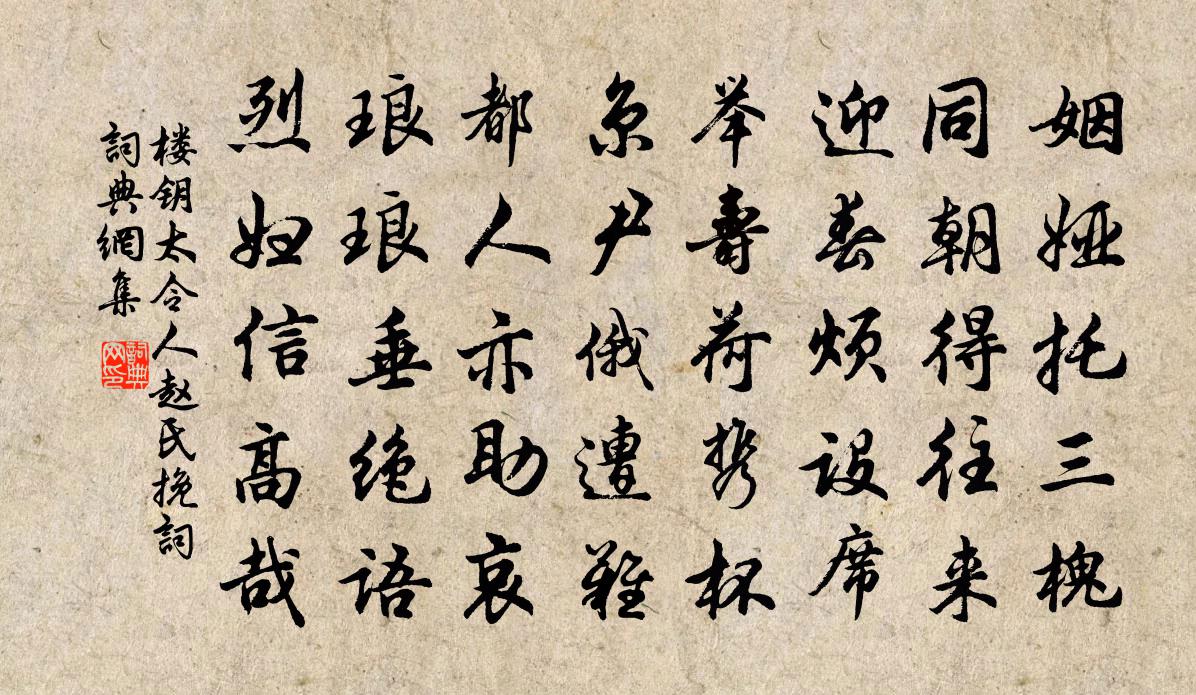 姻娅托三槐
同朝得往来
迎春烦设席
举寿荷携杯
京尹俄遭难
都人亦助哀
琅琅垂绝语
烈妇信高哉
楼钥太令人赵氏挽詞
詞典網集
詞典网印